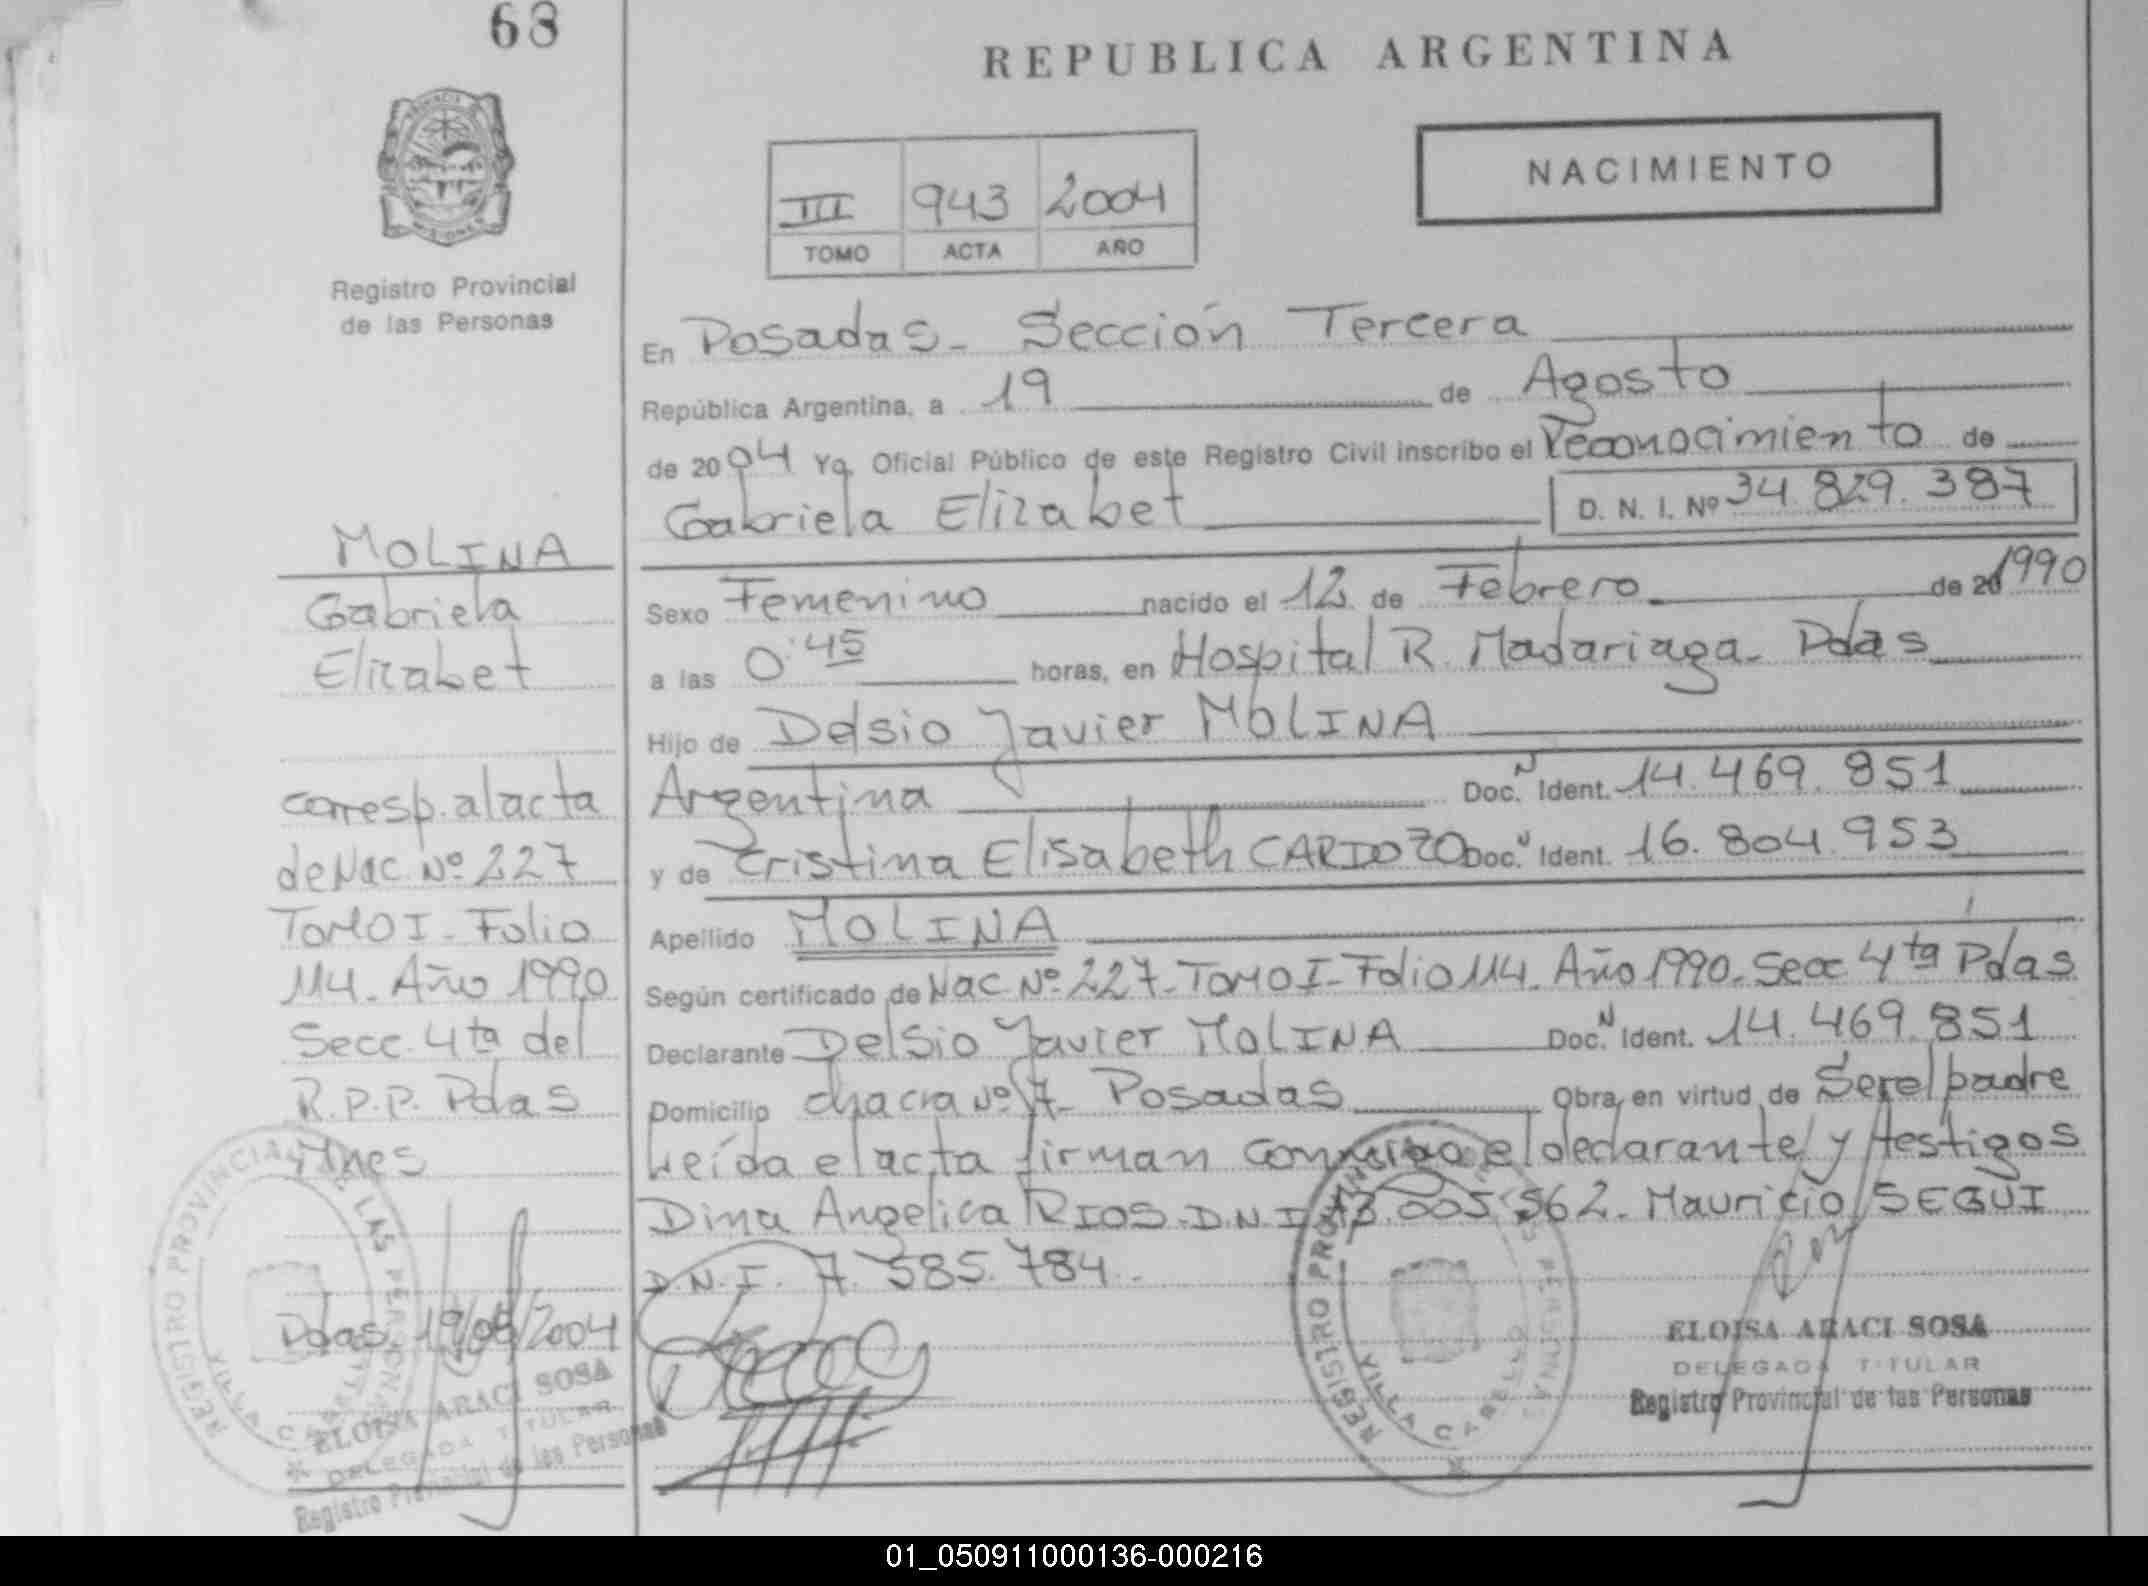 68
REPUBLICA ARGENTINA
NACIMIENTO
III 943 2004
TOMO ACTA AÑO
Registro Provincial
de las Personas
En Posadas - Sección Tercera
República Argentina, a 19 de Agosto
de 2004 Yo, Oficial Público de este Registro Civil inscribo el reconocimiento de
Gabriela Elizabet D. N. I. Nº 34.829.387
Sexo Femenino nacido el 12 de Febrero de 20 1990
a las 0:45 horas, en Hospital R. Madariaga - Pdas
Hijo de Delsio Javier MOLINA
Argentina Doc. N Ident. 14.469.851
y de Cristina Elisabeth CARDOZO Doc. N Ident. 16.804.953
Apellido MOLINA
Según certificado de Nac Nº 227 - Tomo I - Folio 114. Año 1990 - Secc 4ta Pdas
Declarante Delsio Javier MOLINA Doc. N Ident. 14.469.851
Domicilio chacra Nº 7 - Posadas Obra en virtud de Ser el padre
Leída el acta firman conmigo el declarante y testigos
Dina Angelica RIOS - D.N.I. 13.005.562 - Mauricio SEGUI
D.N.I. 7.585.784.
MOLINA
Gabriela
Elizabet
corresp. al acta
de Nac. Nº 227
Tomo I - Folio
114 - Año 1990
Secc. 4ta del
R.P.P. Pdas
Mnes
Pdas 19/08/2004
REGISTRO PROVINCIAL DE LAS PERSONAS
VILLA CABELLO
ELOISA ARACI SOSA
DELEGADA TITULAR
Registro Provincial de las Personas
REGISTRO PROVINCIAL DE LAS PERSONAS
VILLA CABELLO
ELOISA ARACI SOSA
DELEGADA TITULAR
Registro Provincial de las Personas
01_050911000136-000216